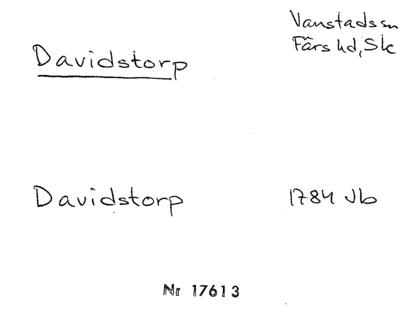 Vanstads sn
Färs hd, Sk
Davidstorp
Davidstorp 1784 Jb
Nr 17613